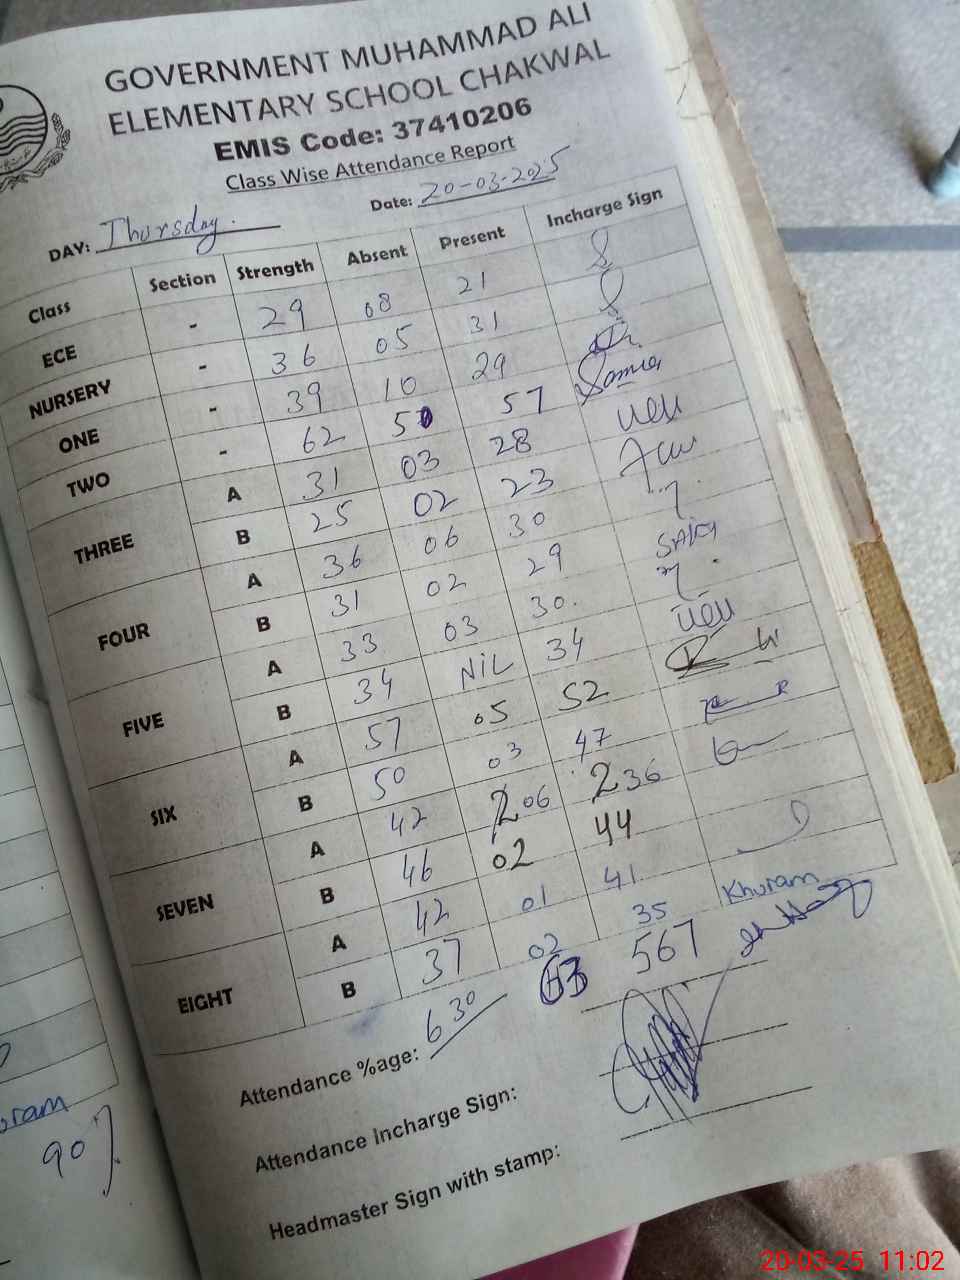 GOVERNMENT MUHAMMAD ALI
ELEMENTARY SCHOOL CHAKWAL
EMIS Code: 37410206
Class Wise Attendance Report
DAY: Thursday. Date: 20-03-2025
Class Section Strength Absent Present Incharge Sign
ECE - 29 08 21
NURSERY - 36 05 31
ONE - 39 10 29
TWO - 62 5 57 Samia
THREE A 31 03 28
B 25 02 23
FOUR A 36 06 30
B 31 02 29
FIVE A 33 03 30.
B 34 NIL 34
SIX A 57 05 52
B 50 03 47
SEVEN A 42 06 36
B 46 02 44
EIGHT A 42 01 41
B 37 02 35 Khuram
630 63 567
Attendance %age:
Attendance Incharge Sign:
Headmaster Sign with stamp:
90%
20-03-25 11:02